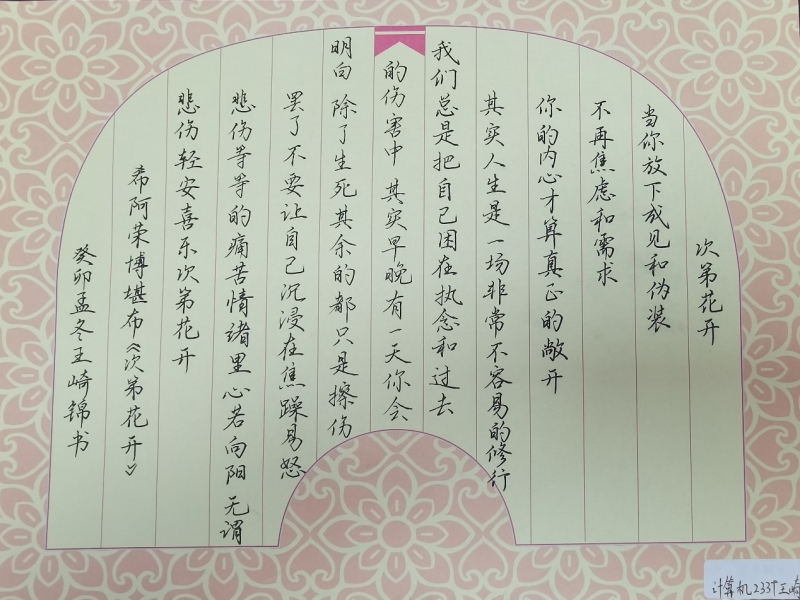 次第花开
当你放下成见和伪装
不再焦虑和需求
你的内心才算真正的敞开
其实人生是一场非常不容易的修行
我们总是把自己困在执念和过去
的伤害中 其实早晚有一天你会
明白 除了生死其余的都只是擦伤
罢了不要让自己沉浸在焦躁易怒
悲伤等等的痛苦情绪里心若向阳 无谓
悲伤轻安喜乐次第花开
希阿荣博堪布《次第花开》
癸卯孟冬王崎锦书
计算机233